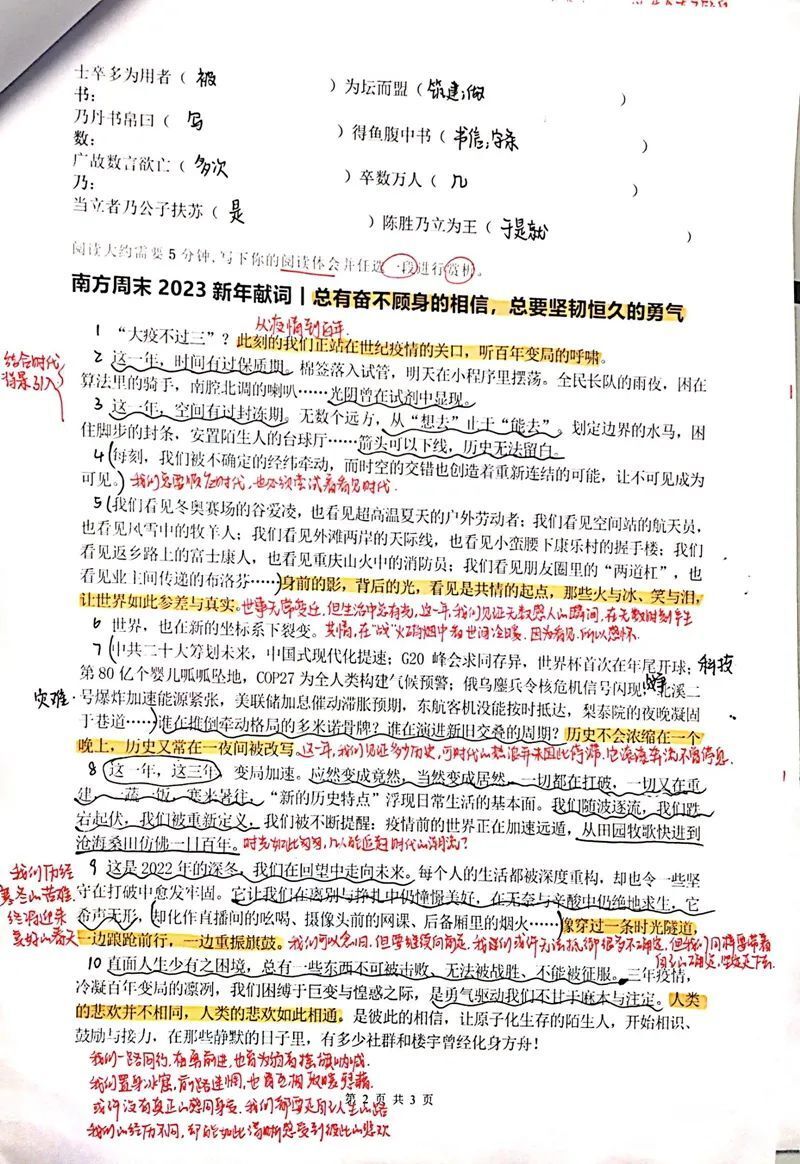 士卒多为用者（ 被 ）为坛而盟（ 筑建；做 ）
书：
乃丹书帛曰（ 写 ）得鱼腹中书（ 书信；字条 ）
数：
广故数言欲亡（ 多次 ）卒数万人（ 几 ）
乃：
当立者乃公子扶苏（ 是 ）陈胜乃立为王（ 于是；就 ）
阅读大约需要 5 分钟，写下你的阅读体会并任选一段进行赏析。
南方周末 2023 新年献词丨总有奋不顾身的相信，总要坚韧恒久的勇气
从疫情到百年
1 “大疫不过三”？此刻的我们正站在世纪疫情的关口，听百年变局的呼啸。
结合时代
背景引入
2 这一年，时间有过保质期。棉签落入试管，明天在小程序里摆荡。全民长队的雨夜，困在
算法里的骑手，南腔北调的喇叭……光阴曾在试剂中显现。
3 这一年，空间有过封冻期。无数个远方，从“想去”止于“能去”。划定边界的水马，困
住脚步的封条，安置陌生人的台球厅……箭头可以下线，历史无法留白。
4 每刻，我们被不确定的经纬牵动，而时空的交错也创造着重新连结的可能，让不可见成为
可见。
5 我们看见冬奥赛场的谷爱凌，也看见超高温夏天的户外劳动者；我们看见空间站的航天员，
也看见风雪中的牧羊人；我们看见外滩两岸的天际线，也看见小蛮腰下康乐村的握手楼；我们
看见返乡路上的富士康人，也看见重庆山火中的消防员；我们看见朋友圈里的“两道杠”，也
看见业主间传递的布洛芬……身前的影，背后的光，看见是共情的起点，那些火与冰、笑与泪，
让世界如此参差与真实。世事无常变迁，但生活中总有光，这一年，我们见证无数感人的瞬间，在无数时刻
6 世界，也在新的坐标系下裂变。
7 中共二十大筹划未来，中国式现代化提速；G20 峰会求同存异，世界杯首次在年尾开球；科技
第 80 亿个婴儿呱呱坠地，COP27 为全人类构建气候预警；俄乌鏖兵令核危机信号闪现，北溪二
灾难
号爆炸加速能源紧张，美联储加息催动滞胀预期，东航客机没能按时抵达，梨泰院的夜晚凝固
于巷道……谁在推倒牵动格局的多米诺骨牌？谁在演进新旧交叠的周期？历史不会浓缩在一个
晚上，历史又常在一夜间被改写。这一年，我们见证多少历史，可时代的热浪并未因此停滞，它滚滚奔流不曾停息
8 这一年，这三年，变局加速。应然变成竟然，当然变成居然，一切都在打破，一切又在重
建。一蔬一饭，寒来暑往，“新的历史特点”浮现日常生活的基本面。我们随波逐流，我们跌
宕起伏，我们被重新定义，我们被不断提醒：疫情前的世界正在加速远遁，从田园牧歌快进到
沧海桑田仿佛一日百年。
我们历经
寒冬的苦难
终将迎来
美好的春天
9 这是 2022 年的深冬，我们在回望中走向未来。每个人的生活都被深度重构，却也令一些坚
守在打破中愈发牢固。它让我们在离别与挣扎中仍憧憬美好，在无奈与辛酸中仍绝地求生，它
希声无形，却化作直播间的吆喝、摄像头前的网课、后备厢里的烟火……像穿过一条时光隧道，
一边踉跄前行，一边重振旗鼓。
10 直面人生少有之困境，总有一些东西不可被击败、无法被战胜、不能被征服。三年疫情，
冷凝百年变局的凛冽，我们困缚于巨变与惶惑之际，是勇气驱动我们不甘于麻木与注定。人类
的悲欢并不相同，人类的悲欢如此相通。是彼此的相信，让原子化生存的陌生人，开始相识、
鼓励与接力，在那些静默的日子里，有多少社群和楼宇曾经化身方舟！
第 2 页 共 3 页
我们的经历不同，却能如此清晰感受到彼此的悲欢